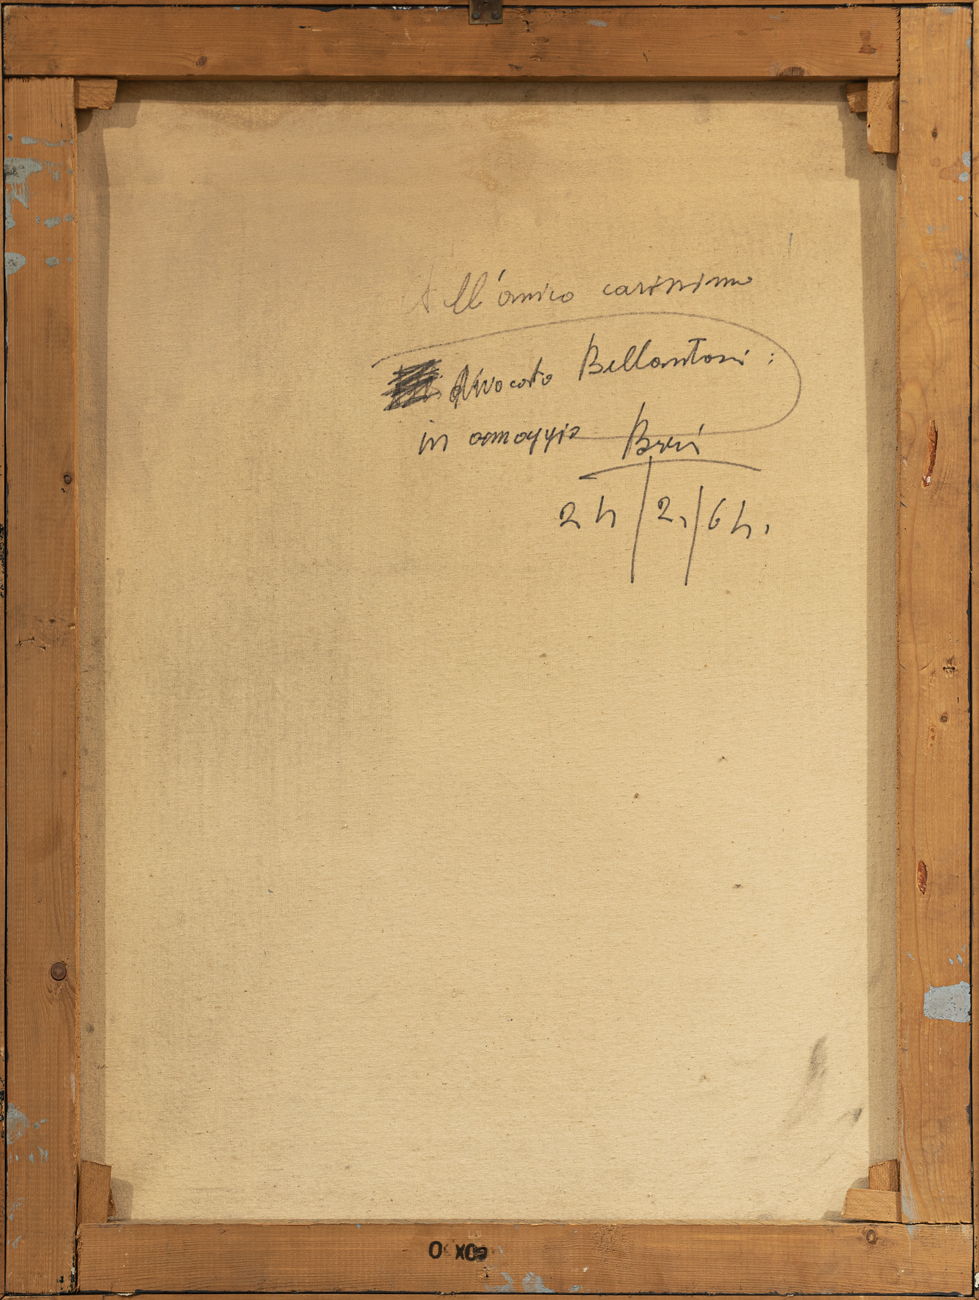 All'amico carissimo
Avvocato Bellantoni:
in omaggio
24/2./64.